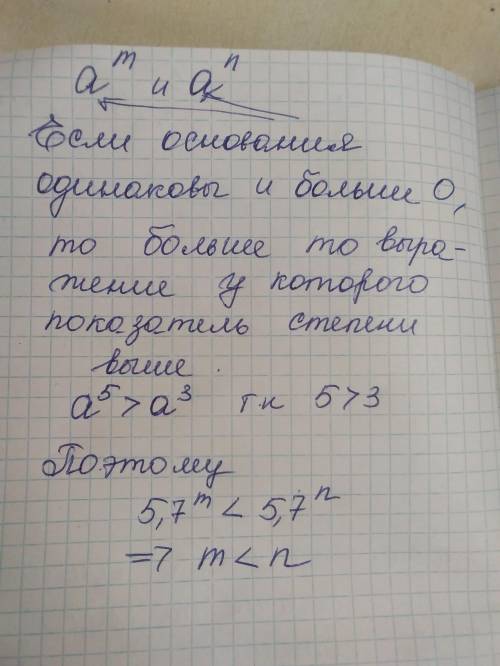 a^m и a^n
Если основания
одинаковы и больше 0,
то больше то выра-
жение у которого
показатель степени
выше.
a^5 > a^3 т.к 5>3
Поэтому
5,7^m < 5,7^n
=> m < n